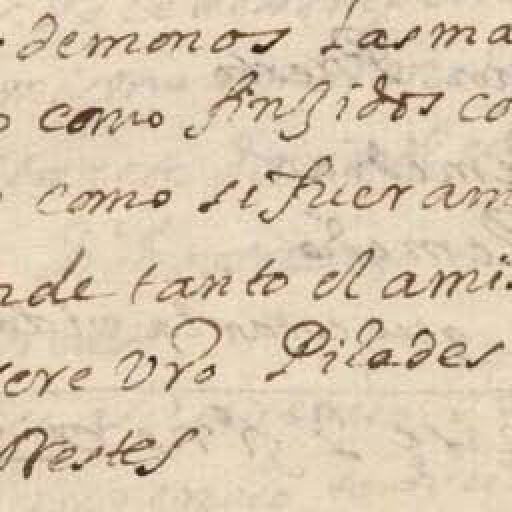 demonos las ma
como finxidos co
como si fueram
nde tanto el ami
sere vro Pilades
Orestes